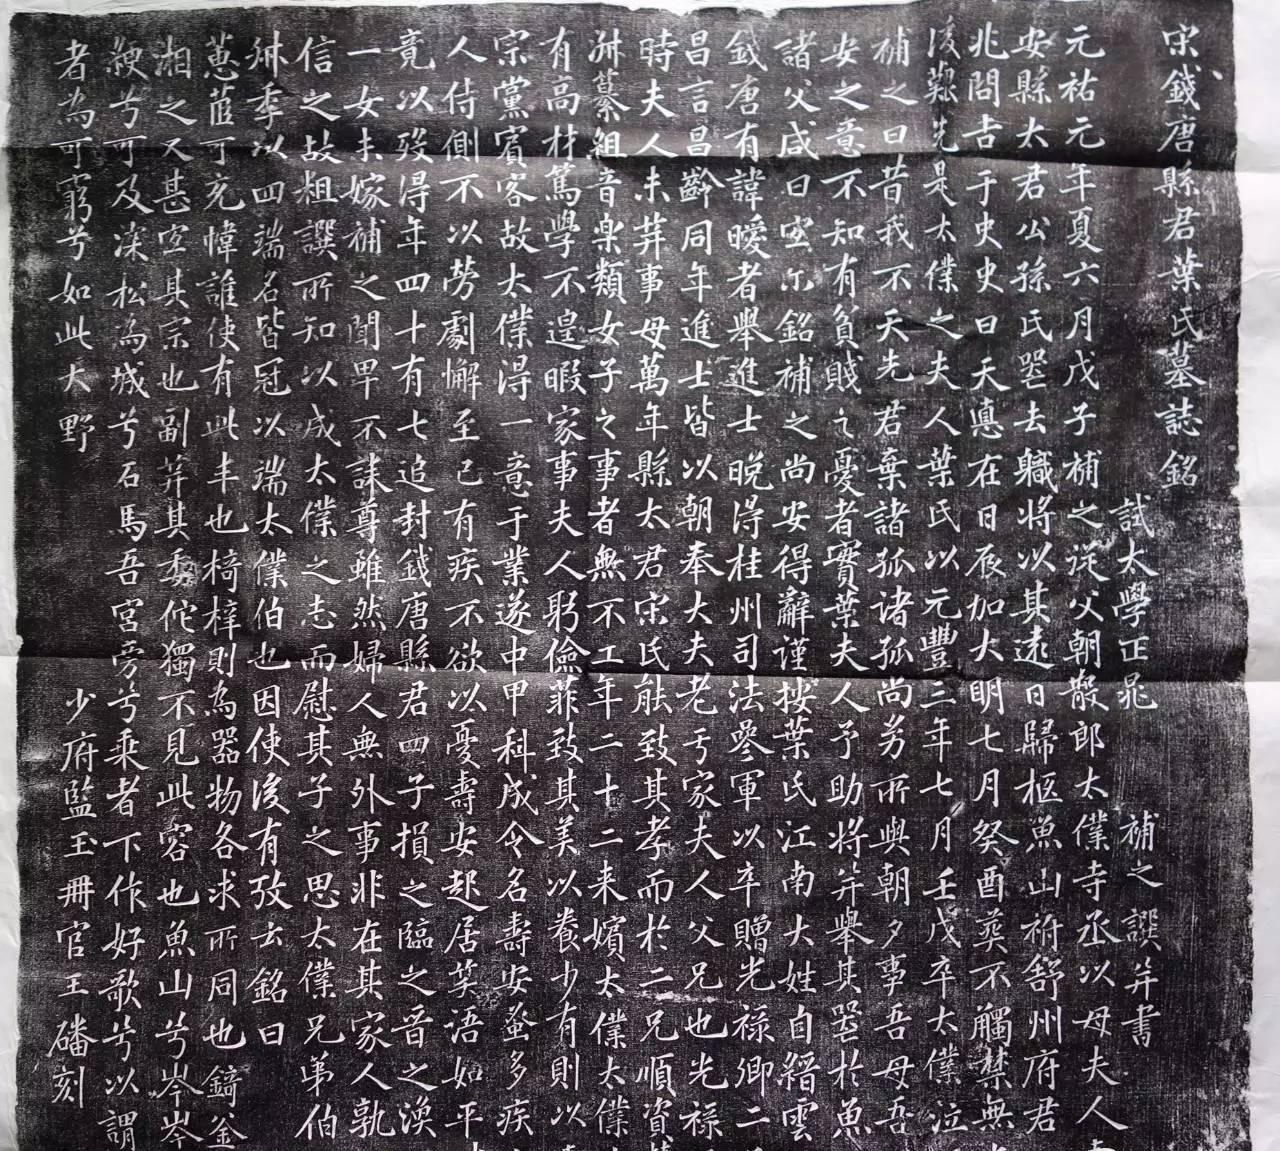 宋錢唐縣君葉氏墓誌銘
試太學正晁補之譔并書
元祐元年夏六月戊子補之從父朝散郎太僕寺丞以母夫人
安縣太君公孫氏喪去職將以其遠日歸柩魚山祔舒州府君
兆問吉于史史曰天悳在日辰加大明七月癸酉葬不觸禁無
後艱先是太僕之夫人葉氏以元豐三年七月壬戌卒太僕泣
補之曰昔我不天先君棄諸孤诸孤尚芳所與朝夕事吾母吾
安之意不知有貧賤之憂者實葉夫人予助將并舉其喪於魚
諸父咸曰宜尔銘補之尚安得辭謹按葉氏江南大姓自縉雲
錢唐有諱曖者舉進士晚得桂州司法參軍以卒贈光祿卿二
昌言昌齡同年進士皆以朝奉大夫老于家夫人父兄也光祿
時夫人未荓事母萬年縣太君宋氏能致其孝而於二兄順資
紃纂組音樂類女子之事者無不工年二十二来嬪太僕太僕
有高材篤學不遑暇家事夫人躬儉菲致其美以養少有則以
宗黨賓客故太僕得一意于業遂中甲科成令名壽安蚤多疾
人侍側不以勞劇懈至已有疾不欲以憂壽安起居笑語如平
竟以歿得年四十有七追封錢唐縣君四子損之臨之晉之渙
一女未嫁補之聞卑不誄尊雖然婦人無外事非在其家人孰
信之故粗譔所知以成太僕之志而慰其子之思太僕兄弟伯
叔季以四端名皆冠以端太僕伯也因使後有攷云銘曰
蔥茝可充幃誰使有此丰也椅梓則為器物各求所同也錡釜
湘之又甚宜其宗也副荓其委佗獨不見此容也魚山兮岑岑
綆兮可及深松為城兮石馬吾宮旁兮乘者下作好歌兮以謂
者為可窮兮如此大野
少府監玉冊官王磻刻